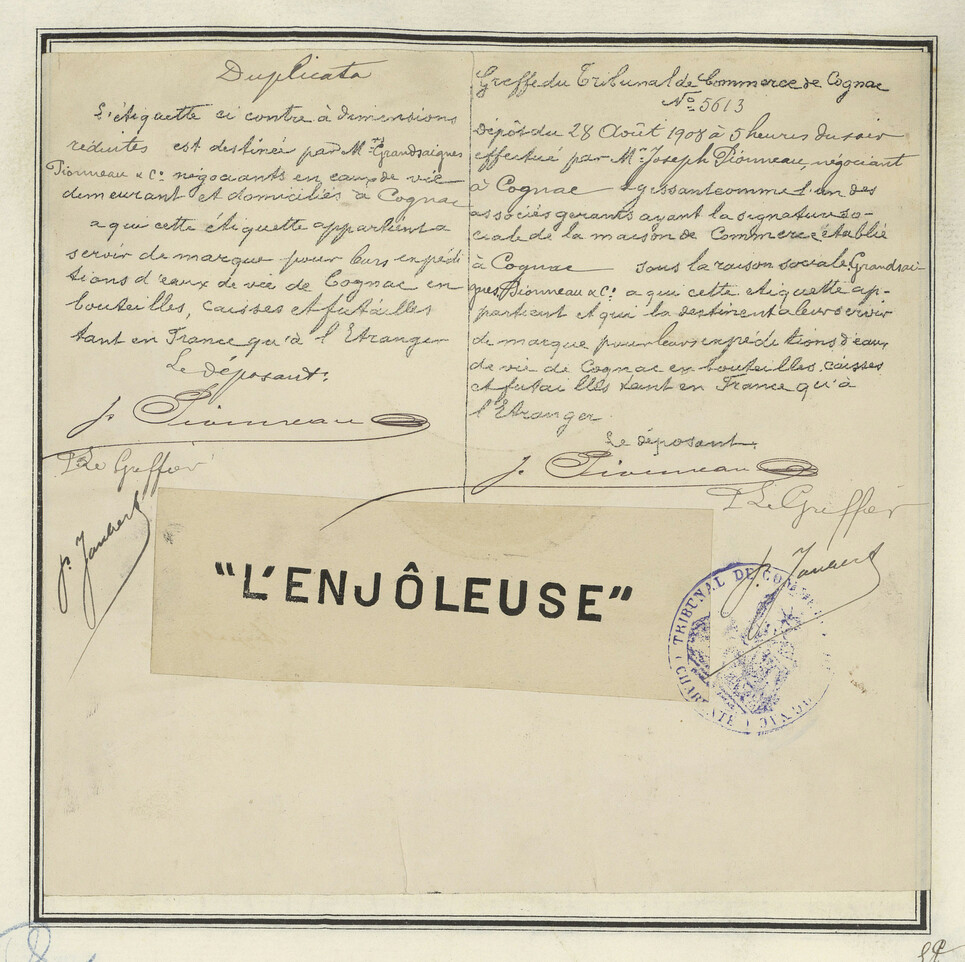 Duplicata
L'étiquette ci contre à dimensions
réduites est destinée par Mrs Grandsaignes
Pionneau & Co négociants en eaux de vie
demeurant et domiciliés à Cognac
a qui cette étiquette appartient a
servir de marque pour leurs expédi
tions d'eaux de vie de Cognac en
bouteilles, caisses et futailles
tant en France qu'à l'Etranger
Le déposant.
J. Pionneau
P Le Greffier
p. Jaubert
Greffe du Tribunal de Commerce de Cognac
No 5613
Dépôt du 28 Août 1908 à 5 heures du soir
effectué par Mr Joseph Pionneau, négociant
à Cognac agissant comme l'un des
associés gerants ayant la signature so-
ciale de la maison de Commerce établie
à Cognac sous la raison sociale Grandsai-
gnes, Pionneau & Co a qui cette etiquette ap-
partient et qui la destinent a leur servir
de marque pour leurs expéditions d'eaux
de vie de Cognac en bouteilles, caisses
et futailles tant en France qu'à
l'Etranger
Le déposant.
J. Pionneau
P Le Greffier
p. Jaubert
"L'ENJÔLEUSE"
TRIBUNAL DE COMMERCE
CHARENTE